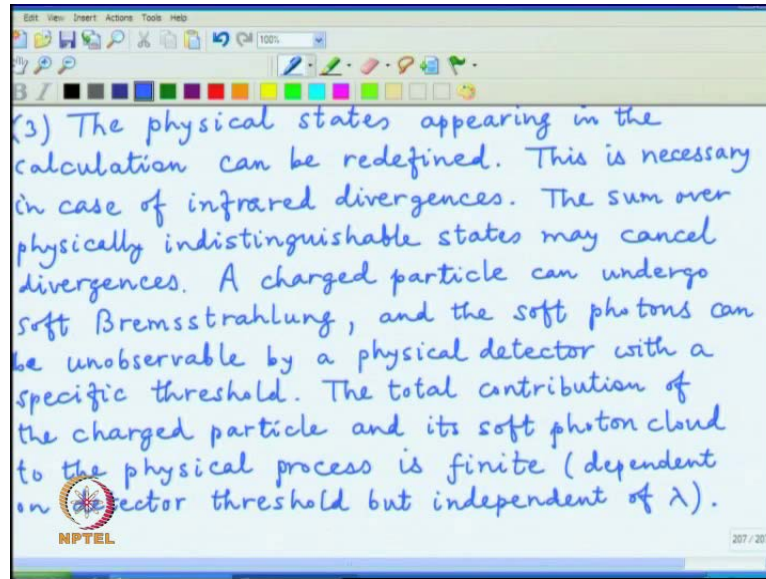 Edit View Insert Actions Tools Help
100%
B I
(3) The physical states appearing in the
calculation can be redefined. This is necessary
in case of infrared divergences. The sum over
physically indistinguishable states may cancel
divergences. A charged particle can undergo
soft Bremsstrahlung, and the soft photons can
be unobservable by a physical detector with a
specific threshold. The total contribution of
the charged particle and its soft photon cloud
to the physical process is finite (dependent
on detector threshold but independent of λ).
NPTEL
207 / 207